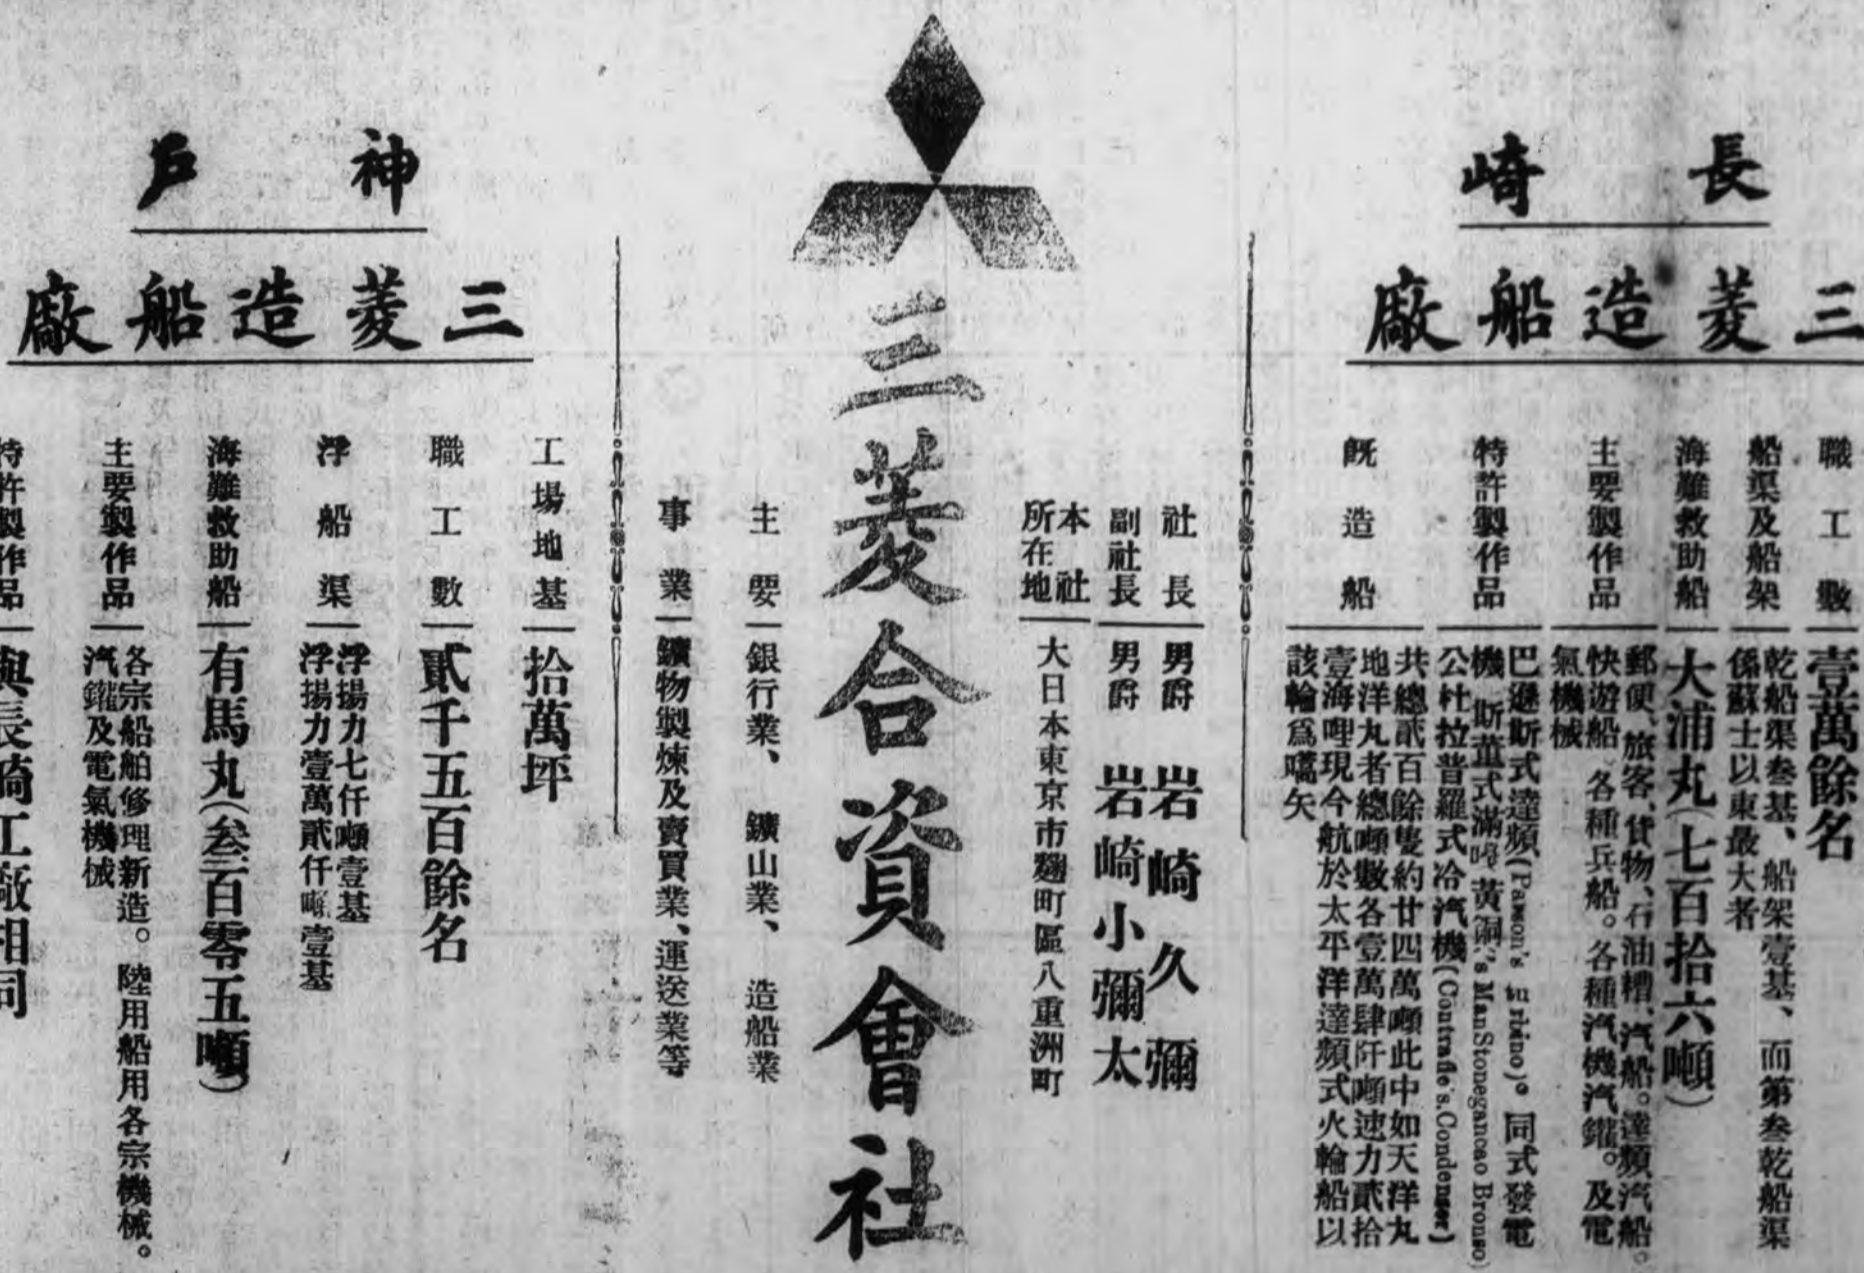 長崎
三菱造船廠
職工數
壹萬餘名
船渠及船架
乾船渠叁基、船架壹基、而第叁乾船渠
係蘇士以東最大者
海難救助船
大浦丸(七百拾六噸)
主要製作品
郵便、旅客、貨物、石油槽、汽船。達頻汽船。
快遊船 各種兵船。各種汽機汽鑵。及電
氣機械
特許製作品
巴遜斯式達頻(Parson's 同式發電
機 斯董式滿 黃銅
公杜拉普羅式冷汽機(Contraflo's.Condenser)
既造船
共總貳百餘隻約廿四萬噸此中如天洋丸
地洋丸者總噸數各壹萬肆阡噸速力貳拾
壹海哩現今航於太平洋達頻式火輪船以
該輪爲嚆矢
三菱合資會社
社長
男爵 岩崎久彌
副社長
男爵 岩崎小彌太
本社
所在地
大日本東京市麴町區八重洲町
主要
銀行業、鑛山業、造船業
事業
鑛物製煉及賣買業、運送業等
神戶
三菱造船廠
工場地基
拾萬坪
職工數
貳千五百餘名
浮船渠
浮揚力七仟噸壹基
浮揚力壹萬貳仟噸壹基
海難救助船
有馬丸(叁百零五噸)
主要製作品
各宗船舶修理新造。陸用船用各宗機械。
汽鑵及電氣機械
特許製作品
與長崎工廠相同